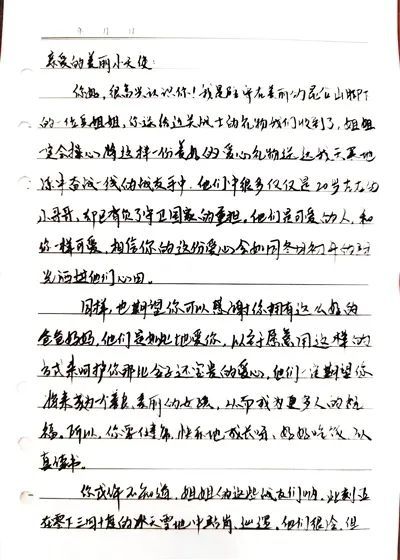 年 月 日
亲爱的美丽小天使:
你好,很高兴认识你!我是驻守在美丽的昆仑山脚下
的一位兵姐姐,你送给边关战士的礼物我们收到了,姐姐
一定会按心将这样一份美的爱心礼物送达到天寒地
冻中奋战一线的战友手中,他们中很多仅仅是20岁左右的
小哥哥,却已肩负了守卫国家的重担。他们是可爱的人,和
你一样可爱,相信你的这份爱心会如同冬日初升的阳
光洒进他们心田。
同样,也期望你可以感谢你拥有这么好的
爸爸妈妈,他们是如此地爱你,以至于愿意用这样的
方式来呵护你那比金子还宝贵的爱心,他们一定期望你
将来成为一个善良、美丽的女孩,从而成为更多人的祝
福。所以,你要健康、快乐地成长呀,好好吃饭,认
真读书。
你或许不知道,姐姐的这些战友们呐,此刻正
在零下三四十度的冰天雪地中站岗、巡逻,他们很冷,但